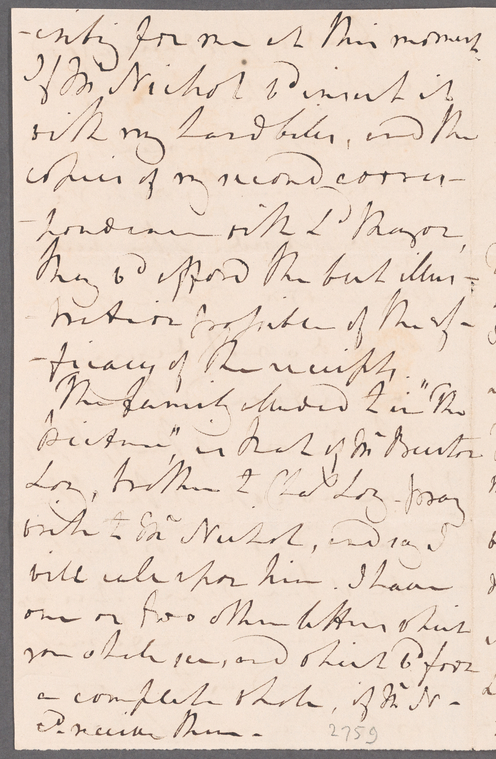 -citing for me at this moment.
If Mr Nichol wd insert it
with my handbills, and the
copies of my second corres-
-pondence with Ld Mayor,
they wd afford the best illus-
-tration possible of the ef-
-ficacy of the receipts.
The family alluded to in "The
Picture", is that of Mr
Loy, brother to Chas Loy - pray
write to Mr Nichol, and say I
will call upon him. I have
one or two other letters which
you shall see, and which wd form
a complete whole, if Mr N-
receive them -
2759